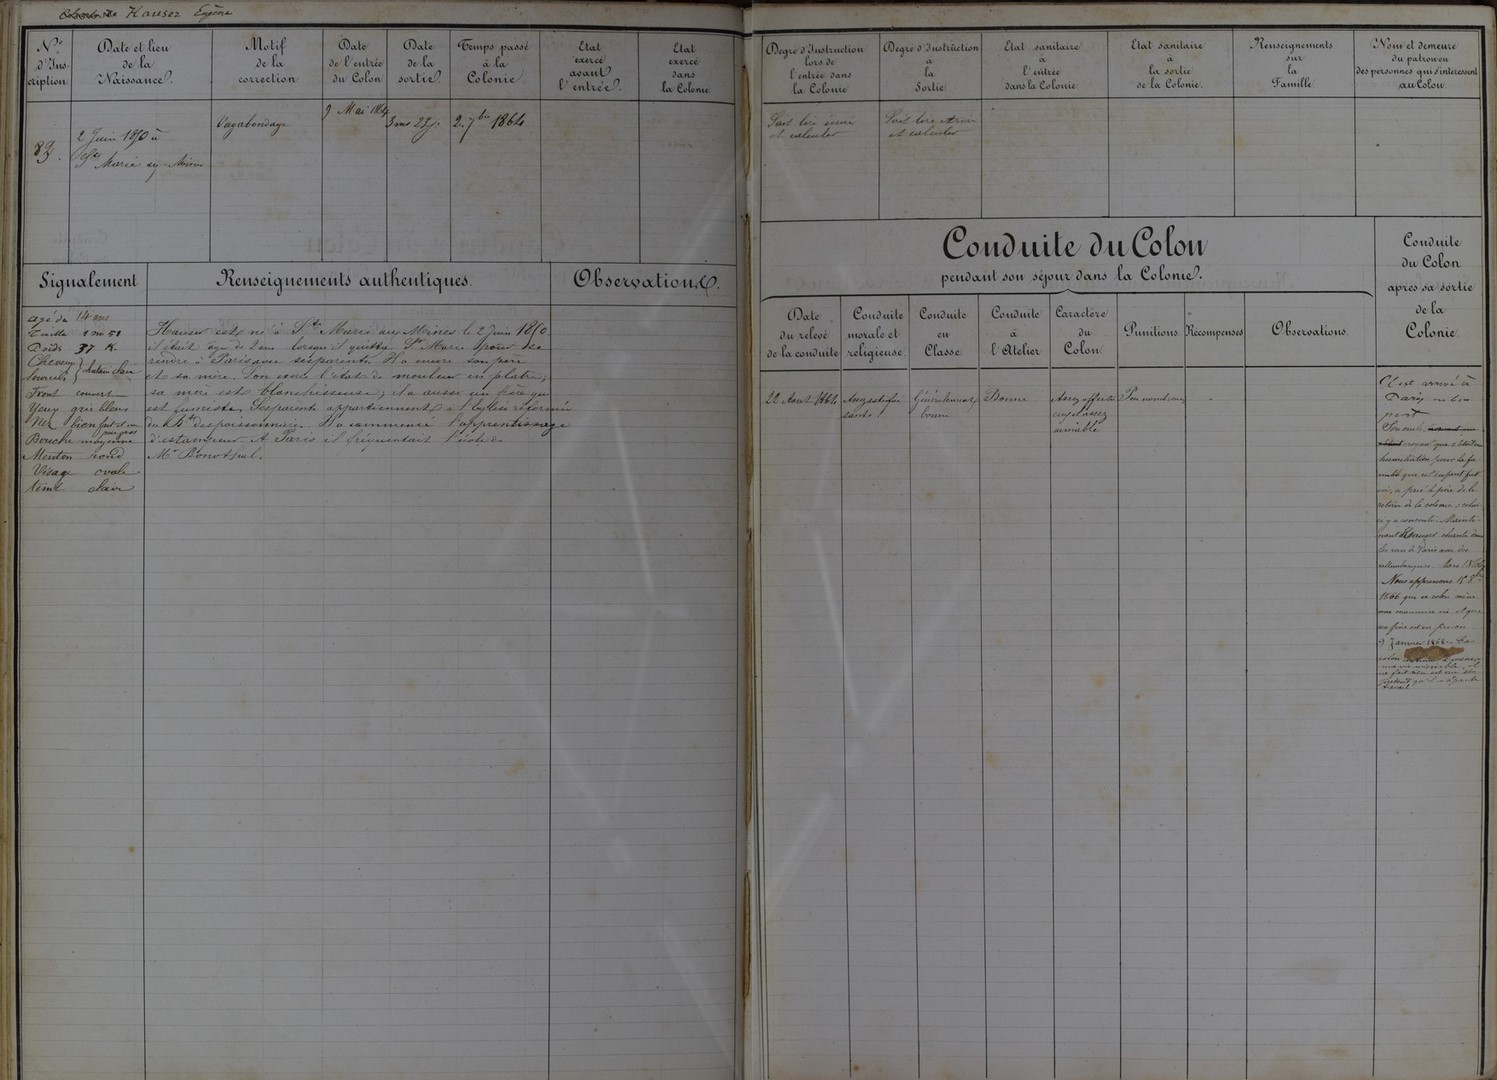 Hauser Eugène
Nº d'Inscription
Date et lieu de la Naissance.
Motif de la correction
Date de l'entrée du Colon
Date de la sortie.
Temps passé à la Colonie.
Etat exercé avant l'entrée.
Etat exercé dans la Colonie
89.
2 Juin 1850 à
Ste Marie aux Mines
Vagabondage
9 Mai 1864
3 ms 23 j.
2. 7bre 1864
Signalement
Renseignements authentiques.
Observations.
agé de 14 ans
Taille 1 m 51
Poids 37 K.
Cheveux
Sourcils } chatain clair
Front couvert
Yeux gris bleus
Nez bien fait
Bouche moyenne
Menton rond
Visage ovale
teint clair
Hauser est né à Ste Marie aux Mines le 2 Juin 1850
il était agé de 2 ans lorsqu'il quitta Ste Marie pour se
rendre à Paris avec ses parents. Il a encore son père
et sa mère. Son exerce l'état de mouleur en platre,
sa mère est blanchisseuse, il a aussi un frère qui
est fumiste. Ses parents appartiennent à l'église réformée
du Bd des poissonnière. Il a commencé l'apprentissage
d'estampeur. A Paris il fréquentait l'école de
Mr
Degré d'Instruction lors de l'entrée dans la Colonie
Degré d'Instruction à la Sortie.
Etat sanitaire à l'entrée dans la Colonie
Etat sanitaire à la sortie de la Colonie.
Renseignements sur la Famille
Nom et demeure du patron ou des personnes qui s'intéressent au Colon
Sait lire écrire
et calculer
Sait lire écrire
et calculer
Conduite du Colon
pendant son séjour dans la Colonie.
Conduite du Colon après sa sortie de la Colonie.
Date du relevé de la conduite
Conduite morale et religieuse.
Conduite en Classe
Conduite à l'Atelier
Caractère du Colon
Punitions
Récompenses
Observations.
22 Aout 1864
Assez satisfaisante
Généralement
bonne
Bonne
Assez
et assez
aimable
Peu nombreuses
C'est arrivé à
Paris à bon
port
Son oncle
croyant que c'était une
humiliation pour la famille
que cet enfant fut
ici, a prié le père de le
retirer de la colonie,
y a consenti. Maintenant
Hauser chante dans
les rues de Paris avec des
saltimbanques. Mars 1865
Nous apprenons le 8bre
1866 que ce colon mène
une mauvaise vie et que
son frère est en prison
9 Janvier 1868. Ce
colon